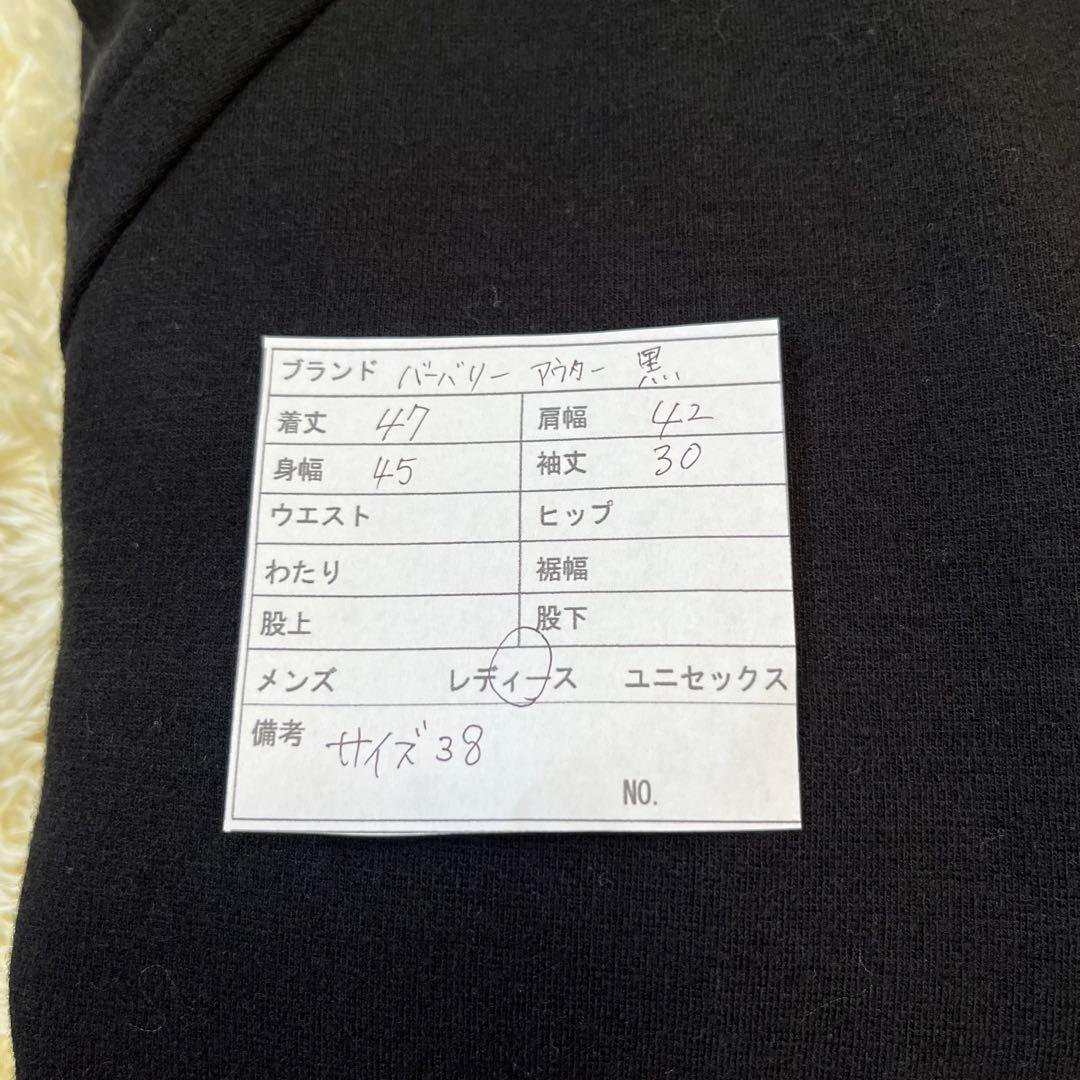 ブランド バーバリー アウター 黒
着丈 47 肩幅 42
身幅 45 袖丈 30
ウエスト ヒップ
わたり 裾幅
股上 股下
メンズ レディース ユニセックス
備考 サイズ38
NO.